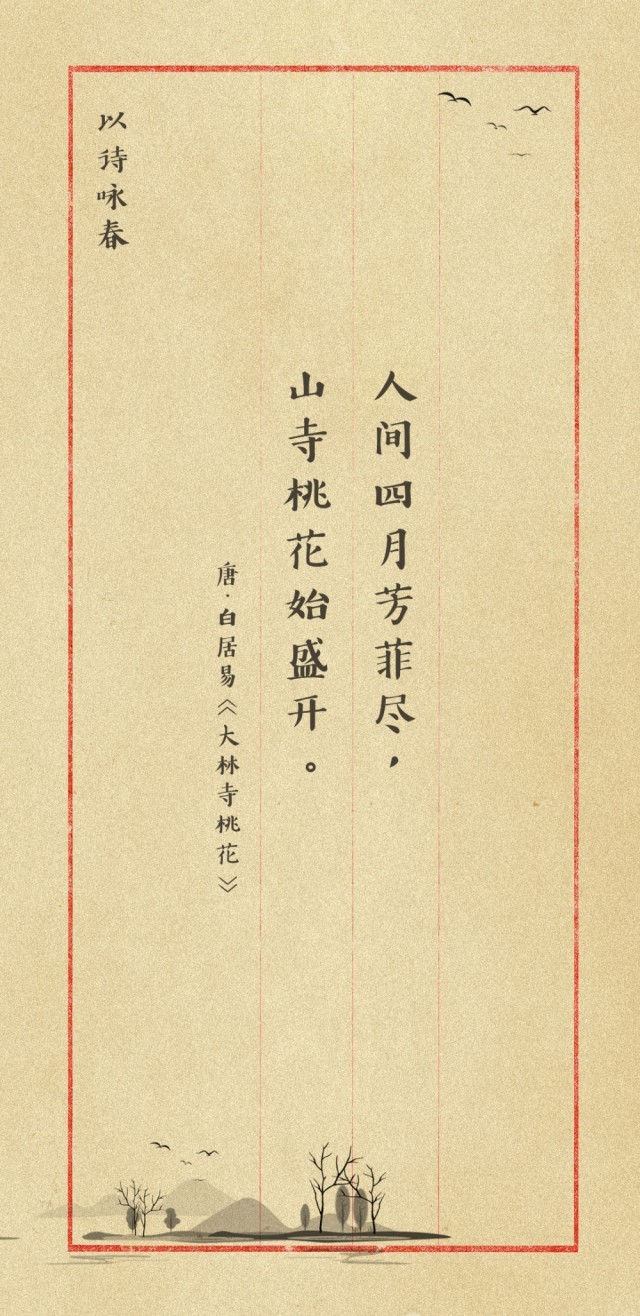 人间四月芳菲尽，
山寺桃花始盛开。
唐·白居易《大林寺桃花》
以待咏春